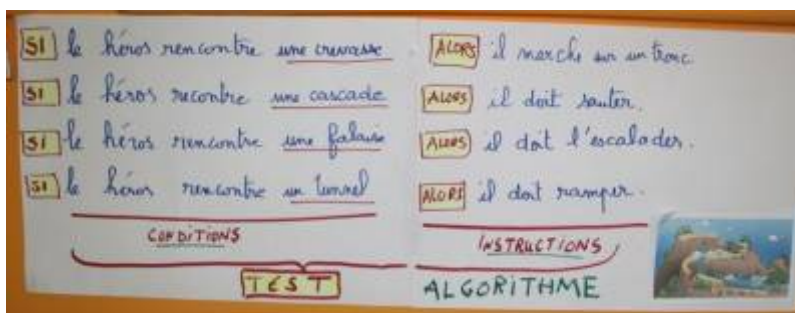 SI le héros rencontre une crevasse ALORS il marche sur un tronc.
SI le héros recontre une cascade ALORS il doit sauter.
SI le héros rencontre une falaise ALORS il doit l'escalader.
SI le héros rencontre un tunnel ALORS il doit ramper.
CONDITIONS INSTRUCTIONS
TEST ALGORITHME